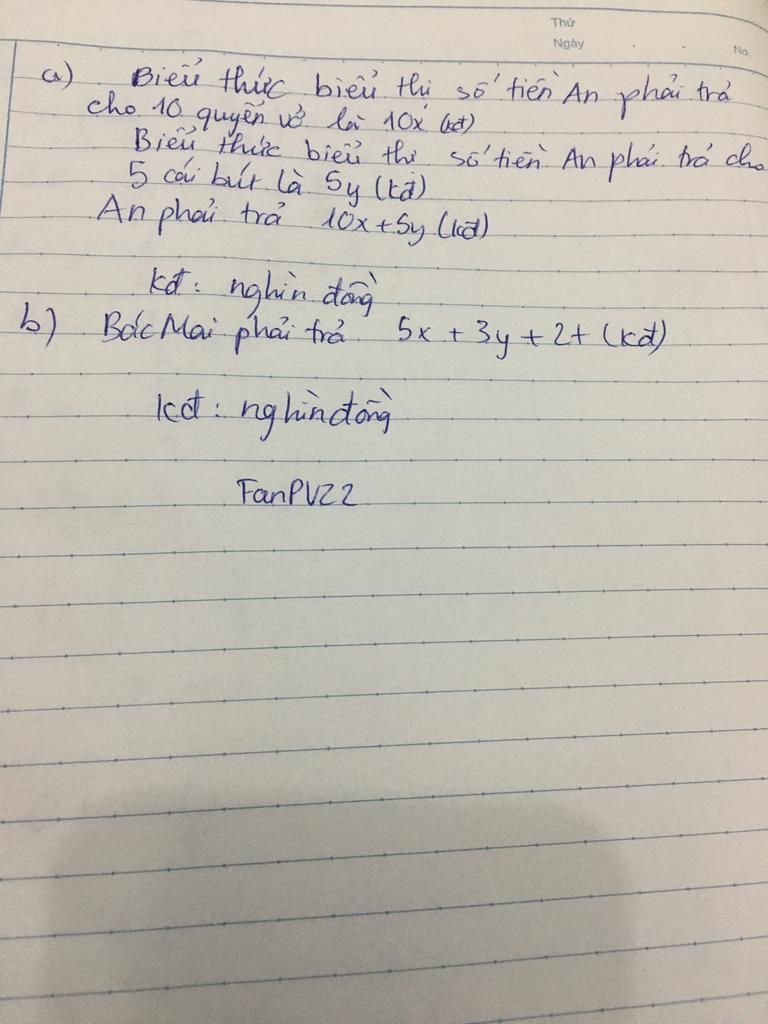 Thứ
Ngày
No.
a) Biểu thức biểu thị số tiền An phải trả
cho 10 quyển vở là 10x (kđ)
Biểu thức biểu thị số tiền An phải trả cho
5 cái bút là 5y (kđ)
An phải trả 10x+5y (kđ)
kđ: nghìn đồng
b) Bác Mai phải trả 5x + 3y + 2t (kđ)
kđ: nghìn đồng
FanPVZ2